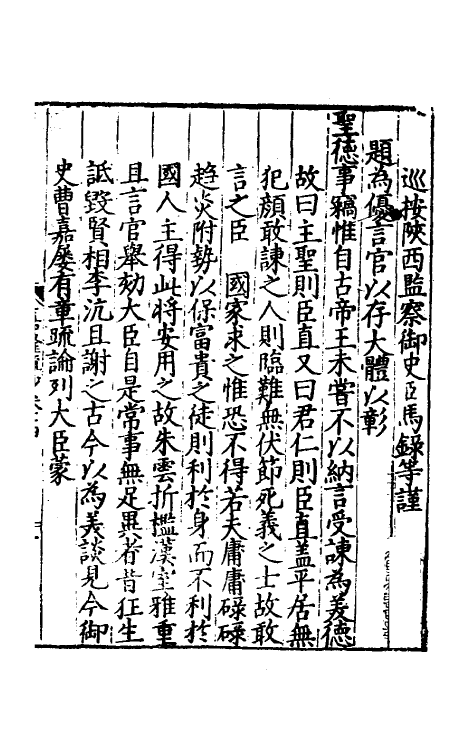 巡按陝西監察御史臣馬錄等謹
題為優言官以存大體以彰
聖德事竊惟自古帝王未嘗不以納言受諫為美德
故曰主聖則臣直又曰君仁則臣直蓋平居無
犯顏敢諫之人則臨難無伏節死義之士故敢
言之臣 國家求之惟恐不得若夫庸庸碌碌
趨炎附勢以保富貴之徒則利於身而不利於
國人主得此將安用之故朱雲折檻漢室雅重
且言官舉劾大臣自是常事無足異者昔狂生
詆毀賢相李沆且謝之古今以為美談見今御
史曹嘉屢有重疏論列大臣蒙